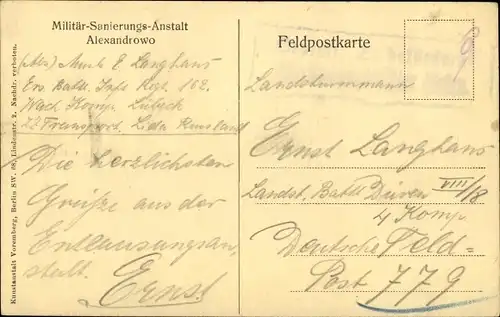 Militär-Sanierungs-Anstalt
Alexandrowo
(Abs) Musk E Langhans
Ers Batl. Inft Regt. 162.
Nach Komp Lübeck
22 Transport. Lida Russland
Die herzlichsten
Grüße aus der
Entlausungsan-
stalt.
Ernst
Kunstanstalt Voremberg, Berlin SW. 68, Lindenstr. 2. Nachdr. verboten.
Feldpostkarte
Landsturmmann
Ernst Langhans
Landst. Batl Düren VIII/18
4 Komp
Deutsche Feld=
Post 779